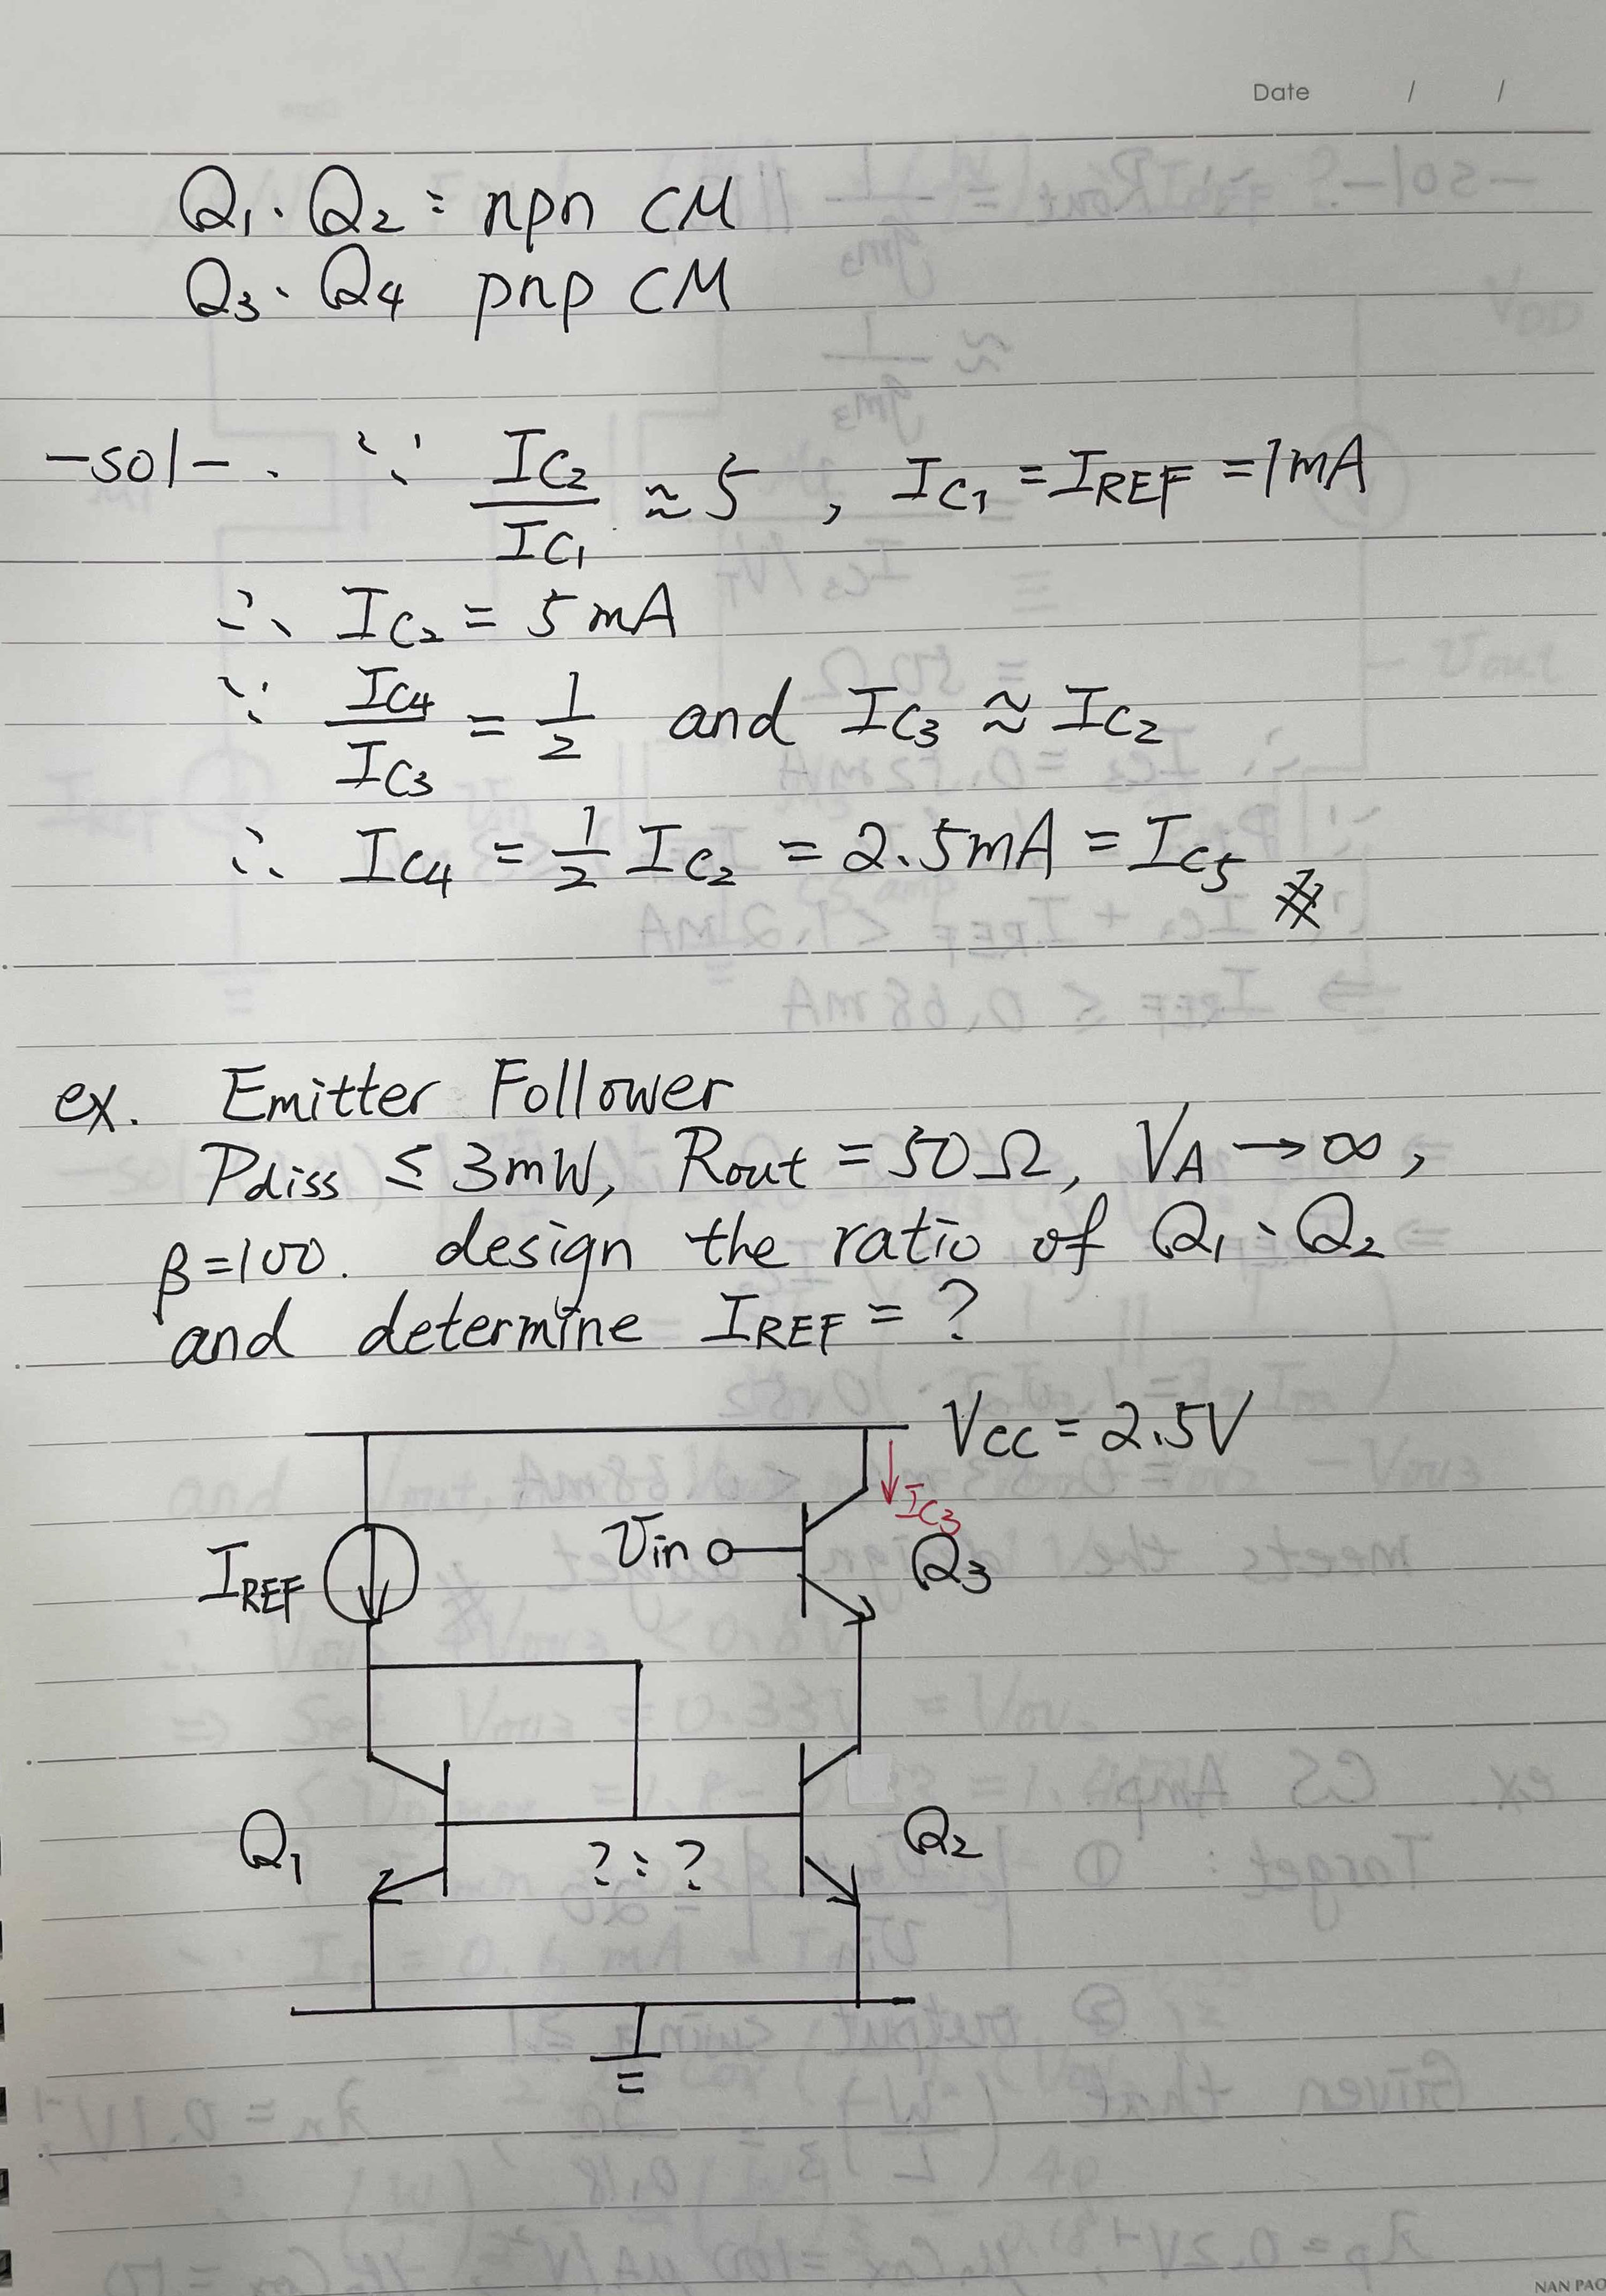 Date / /
Q₁、Q₂ : npn CM
Q₃、Q₄ pnp CM
-sol-. ∵ I_C₂ / I_C₁ ≈ 5 , I_C₁ = I_REF = 1mA
∴ I_C₂ = 5mA
∵ I_C4 / I_C3 = 1/2 and I_C3 ≈ I_C2
∴ I_C4 = 1/2 I_C₂ = 2.5mA = I_C5 #
ex. Emitter Follower
Pdiss ≤ 3mW, Rout = 50Ω, V_A → ∞,
β=100. design the ratio of Q₁、Q₂
and determine I_REF = ?
Vcc = 2.5V
I_C3
Vin
Q3
I_REF
Q₁
?:?
Q₂
NAN PAO